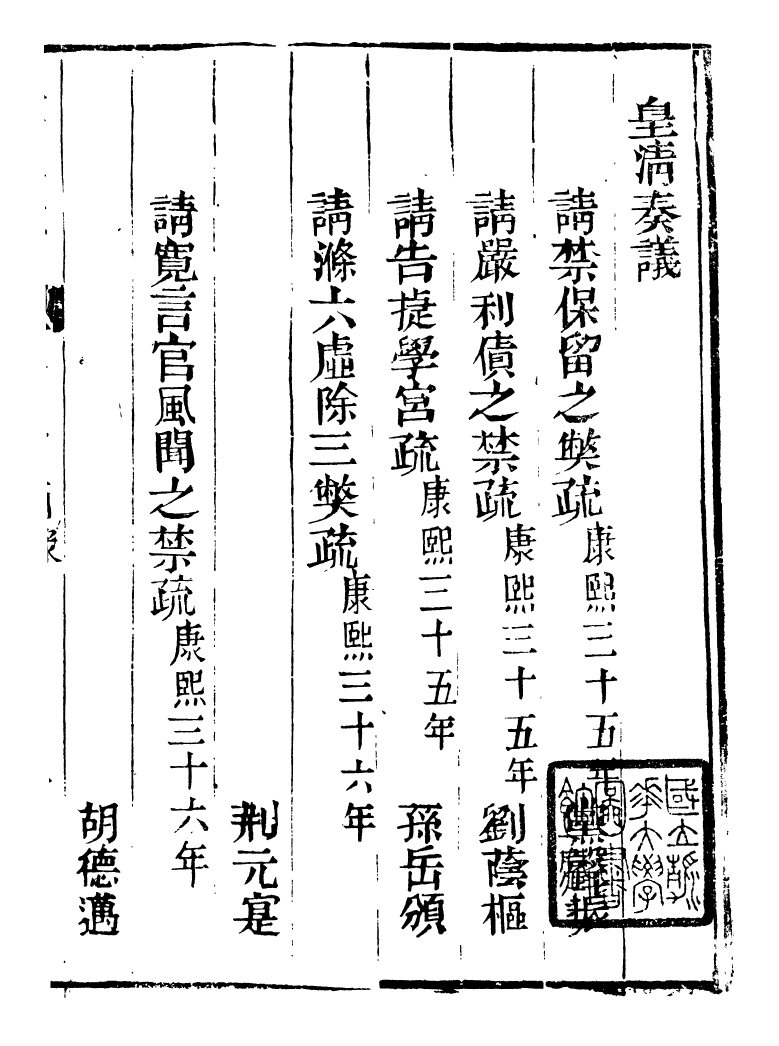 皇淸奏議
請禁保留之獘疏康熙三十五年
請嚴利債之禁疏康熙三十五年 劉蔭樞
請告捷學宮疏康熙三十五年 孫岳頒
請滌六虛除三獘疏康熙三十六年
荆元寔
請寬言官風聞之禁疏康熙三十六年
胡德邁
國立清華大學